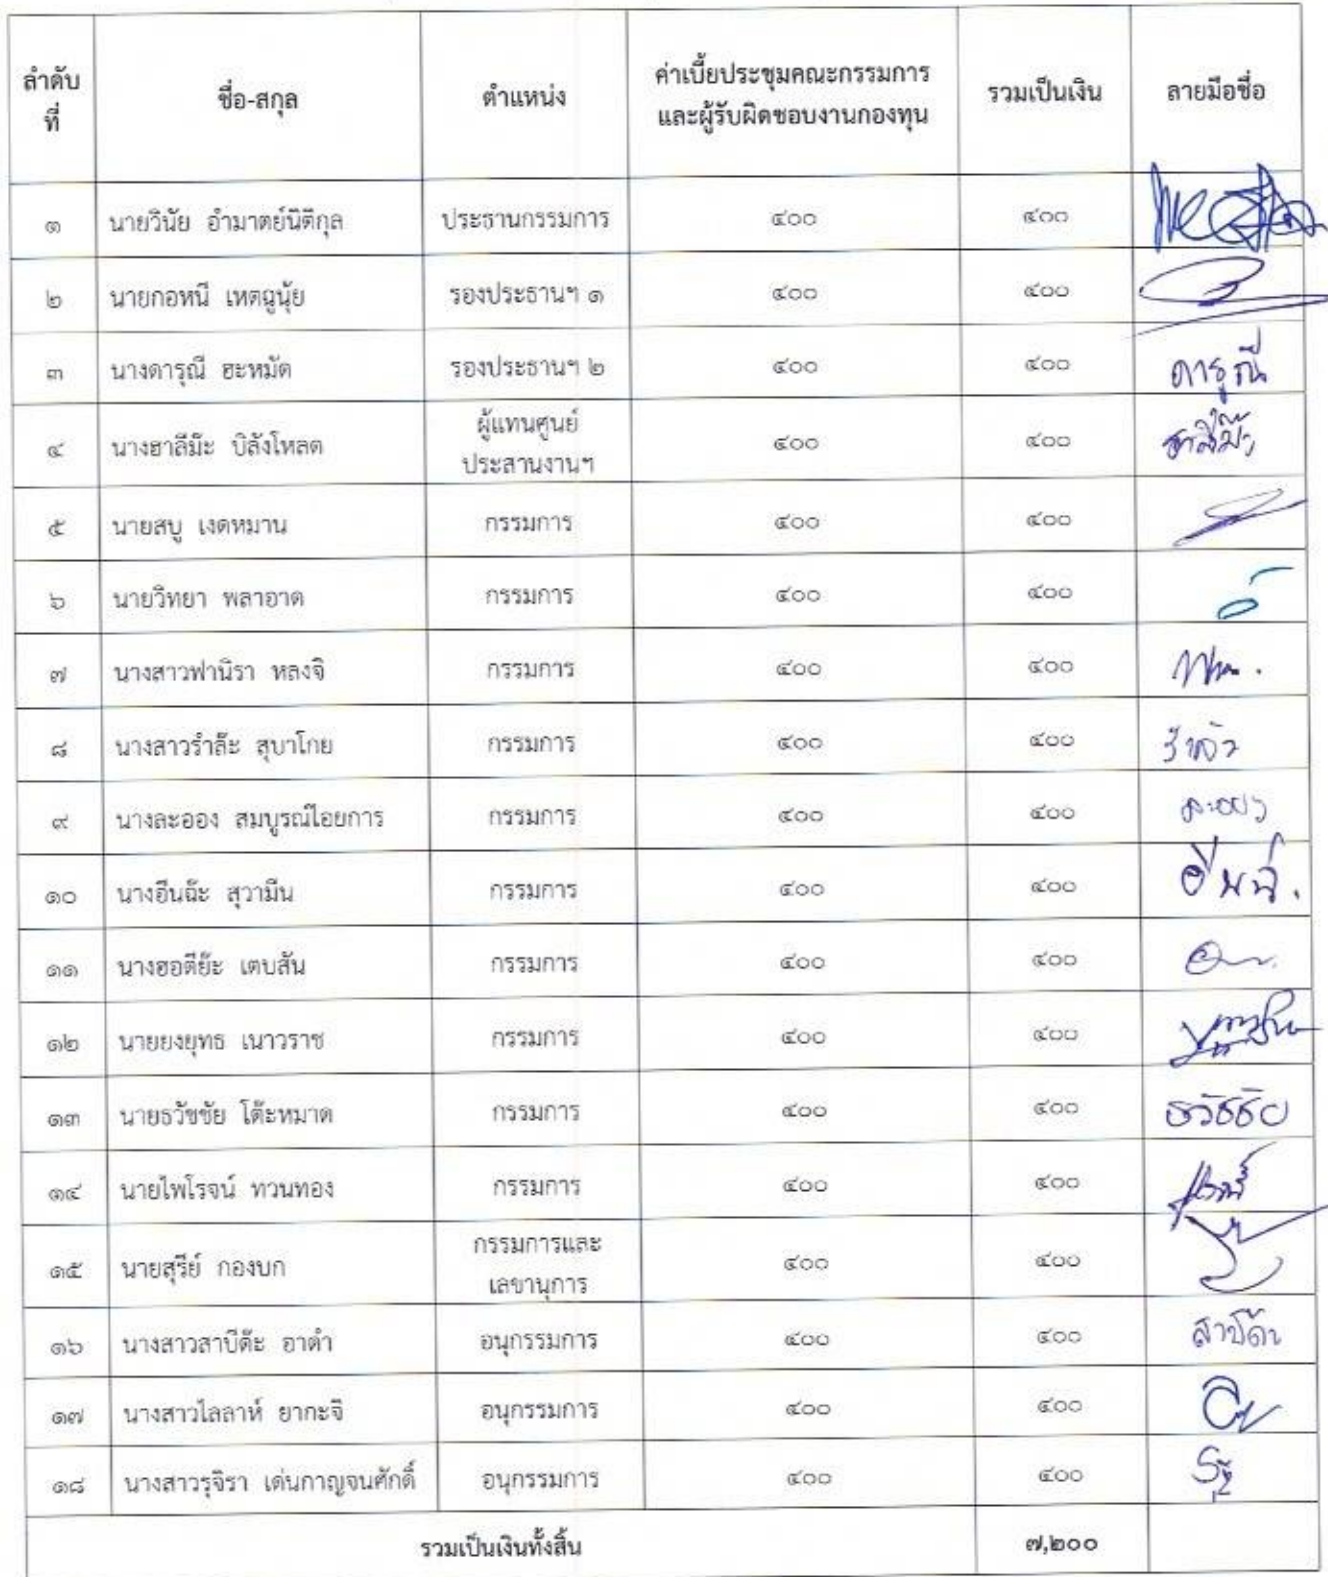 ลำดับที่ ชื่อ-สกุล ตำแหน่ง ค่าเบี้ยประชุมคณะกรรมการและผู้รับผิดชอบงานกองทุน รวมเป็นเงิน ลายมือชื่อ
๑ นายวินัย อำมาตย์นิติกุล ประธานกรรมการ ๔๐๐ ๔๐๐
๒ นายกอหนี เหตฉูนุ้ย รองประธานฯ ๑ ๔๐๐ ๔๐๐
๓ นางดารุณี ฮะหมัด รองประธานฯ ๒ ๔๐๐ ๔๐๐ ดารุณี
๔ นางฮาลีม๊ะ บิลังโหลด ผู้แทนศูนย์ประสานงานฯ ๔๐๐ ๔๐๐ ฮาลีม๊ะ
๕ นายสบู เงดหมาน กรรมการ ๔๐๐ ๔๐๐
๖ นายวิทยา พลาอาด กรรมการ ๔๐๐ ๔๐๐
๗ นางสาวฟานิรา หลงจิ กรรมการ ๔๐๐ ๔๐๐
๘ นางสาวรำล๊ะ สุบาโกย กรรมการ ๔๐๐ ๔๐๐
๙ นางละออง สมบูรณ์ไอยการ กรรมการ ๔๐๐ ๔๐๐ ละออง
๑๐ นางอีนฉ๊ะ สุวามีน กรรมการ ๔๐๐ ๔๐๐
๑๑ นางฮอดีย๊ะ เตบสัน กรรมการ ๔๐๐ ๔๐๐
๑๒ นายยงยุทธ เนาวราช กรรมการ ๔๐๐ ๔๐๐
๑๓ นายธวัชชัย โต๊ะหมาด กรรมการ ๔๐๐ ๔๐๐ ธวัชชัย
๑๔ นายไพโรจน์ ทวนทอง กรรมการ ๔๐๐ ๔๐๐
๑๕ นายสุรีย์ กองบก กรรมการและเลขานุการ ๔๐๐ ๔๐๐
๑๖ นางสาวสาบีต๊ะ อาดำ อนุกรรมการ ๔๐๐ ๔๐๐ สาบีต๊ะ
๑๗ นางสาวไลลาห์ ยากะจิ อนุกรรมการ ๔๐๐ ๔๐๐
๑๘ นางสาวรุจิรา เด่นกาญจนศักดิ์ อนุกรรมการ ๔๐๐ ๔๐๐
รวมเป็นเงินทั้งสิ้น ๗,๒๐๐